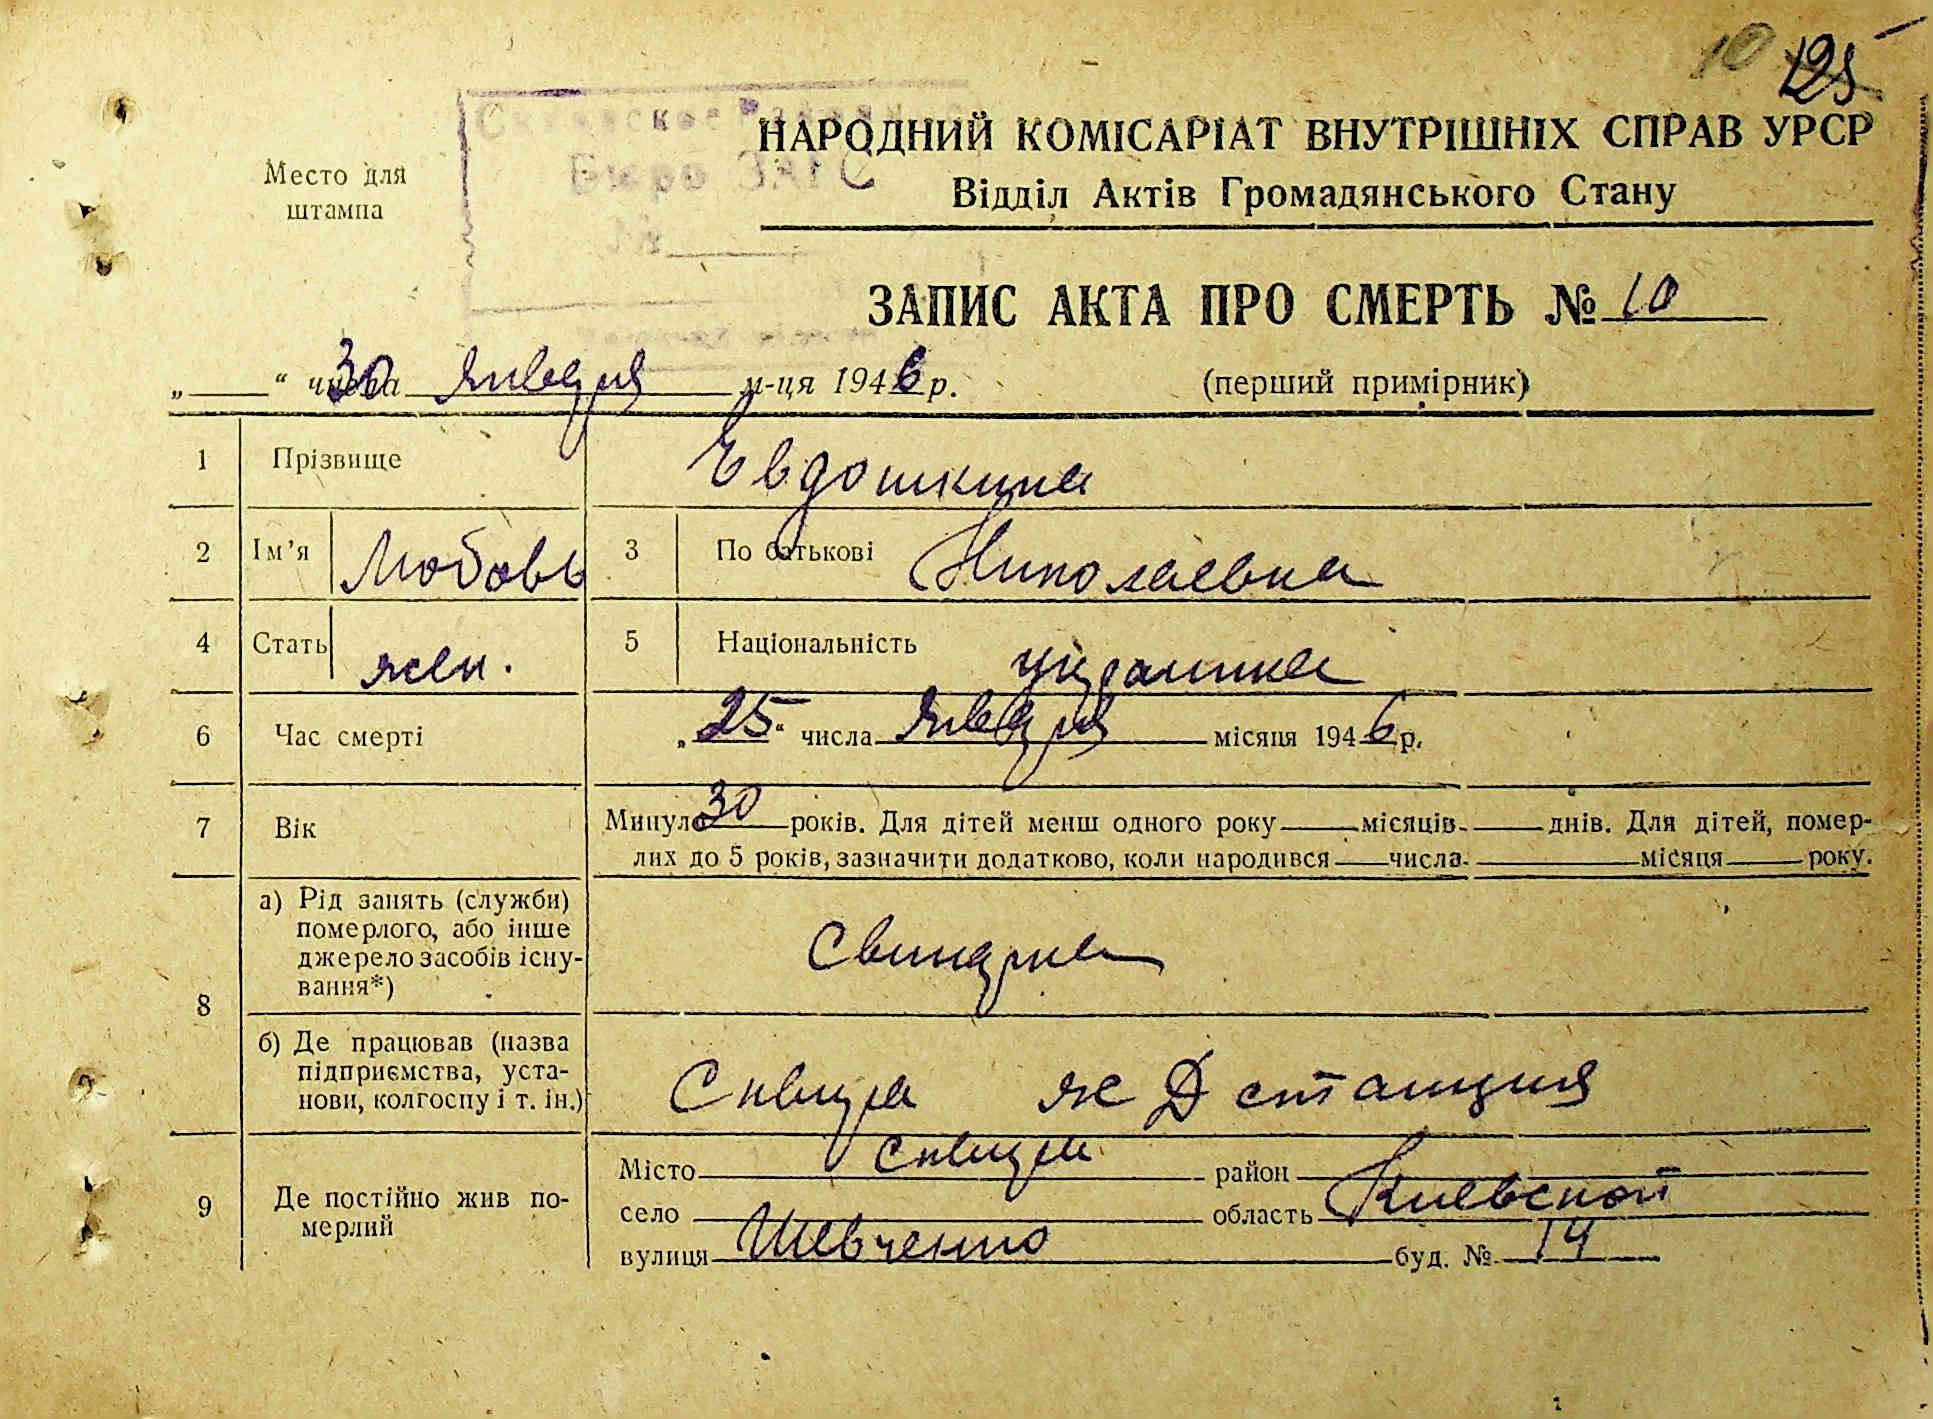 10 125
Место для
штампа
Бюро ЗАГС
№
НАРОДНИЙ КОМІСАРІАТ ВНУТРІШНІХ СПРАВ УРСР
Відділ Актів Громадянського Стану
ЗАПИС АКТА ПРО СМЕРТЬ № 10
„ “ числа 30 января м-ця 1946 р. (перший примірник)
1 Прізвище Евдошкина
2 Ім’я Любовь 3 По батькові Николаевна
4 Стать жен. 5 Національність украинка
6 Час смерті „25“ числа января місяця 1946 р.
7 Вік Минуло 30 років. Для дітей менш одного року місяців днів. Для дітей, помер-
лих до 5 років, зазначити додатково, коли народився числа місяця року.
8 а) Рід занять (служби)
померлого, або інше
джерело засобів існу-
вання*) Свинарка
б) Де працював (назва
підприємства, уста-
нови, колгоспу і т. ін.) Сквира ж Д станция
9 Де постійно жив по-
мерлий
Місто Сквира район
село область Киевской
вулиця Шевченко буд. № 14